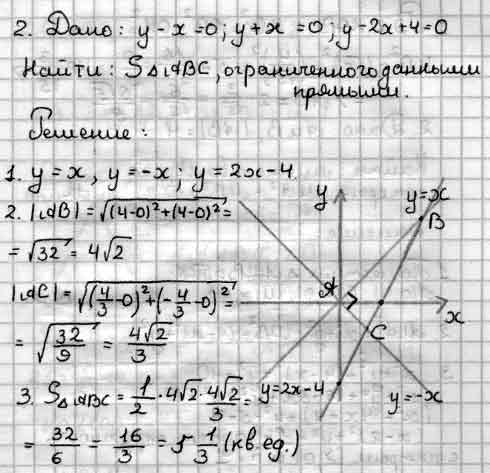 2. Дано: y-x=0; y+x=0; y-2x+4=0
Найти: S△ABC, ограниченного данными
прямыми.
Решение:
1. y=x, y=-x; y=2x-4.
2. |AB|=√((4-0)²+(4-0)²)=
=√32=4√2
|AC|=√((4/3-0)²+(-4/3-0)²)=
=√(32/9)=4√2/3
3. S△ABC=1/2·4√2·4√2/3=
=32/6=16/3=5 1/3 (кв.ед.)
y
y=x
B
A
x
C
y=2x-4
y=-x